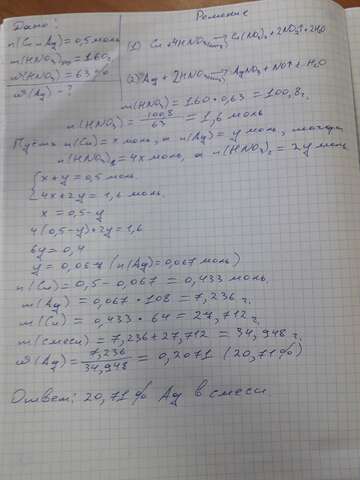 Дано:
Решение
n(Cu, Ag) = 0,5 моль
m(HNO₃)р-р = 160г
ω(HNO₃) = 63%
ω(Ag) - ?
(1) Cu + 4HNO₃(конц) → Cu(NO₃)₂ + 2NO₂↑ + 2H₂O
(2) Ag + 2HNO₃(конц) → AgNO₃ + NO₂↑ + H₂O
m(HNO₃) = 160 · 0,63 = 100,8 г.
n(HNO₃) = 100,8/63 = 1,6 моль
Пусть n(Cu) = x моль, а n(Ag) = y моль, тогда
n(HNO₃)₁ = 4x моль, а n(HNO₃)₂ = 2y моль
{ x + y = 0,5 моль
{ 4x + 2y = 1,6 моль.
x = 0,5 - y
4(0,5 - y) + 2y = 1,6
6y = 0,4
y = 0,067 (n(Ag) = 0,067 моль)
n(Cu) = 0,5 - 0,067 = 0,433 моль.
m(Ag) = 0,067 · 108 = 7,236 г.
m(Cu) = 0,433 · 64 = 27,712 г.
m(смеси) = 7,236 + 27,712 = 34,948 г.
ω(Ag) = 7,236/34,948 = 0,2071 (20,71%)
Ответ: 20,71% Ag в смеси.